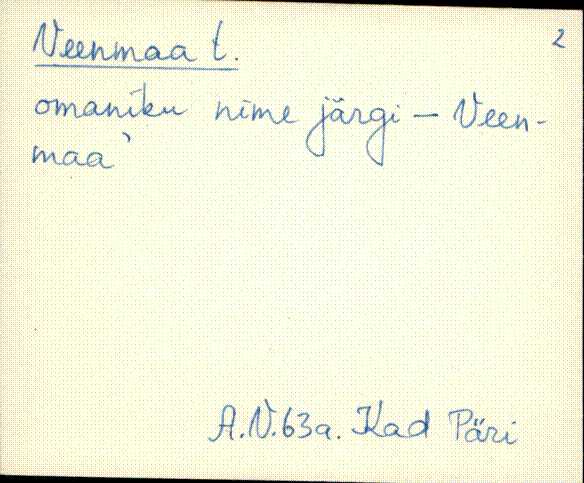 Veenmaa t. 2
omaniku nime järgi – Veen-
maa`
A.V.63a. Kad Päri